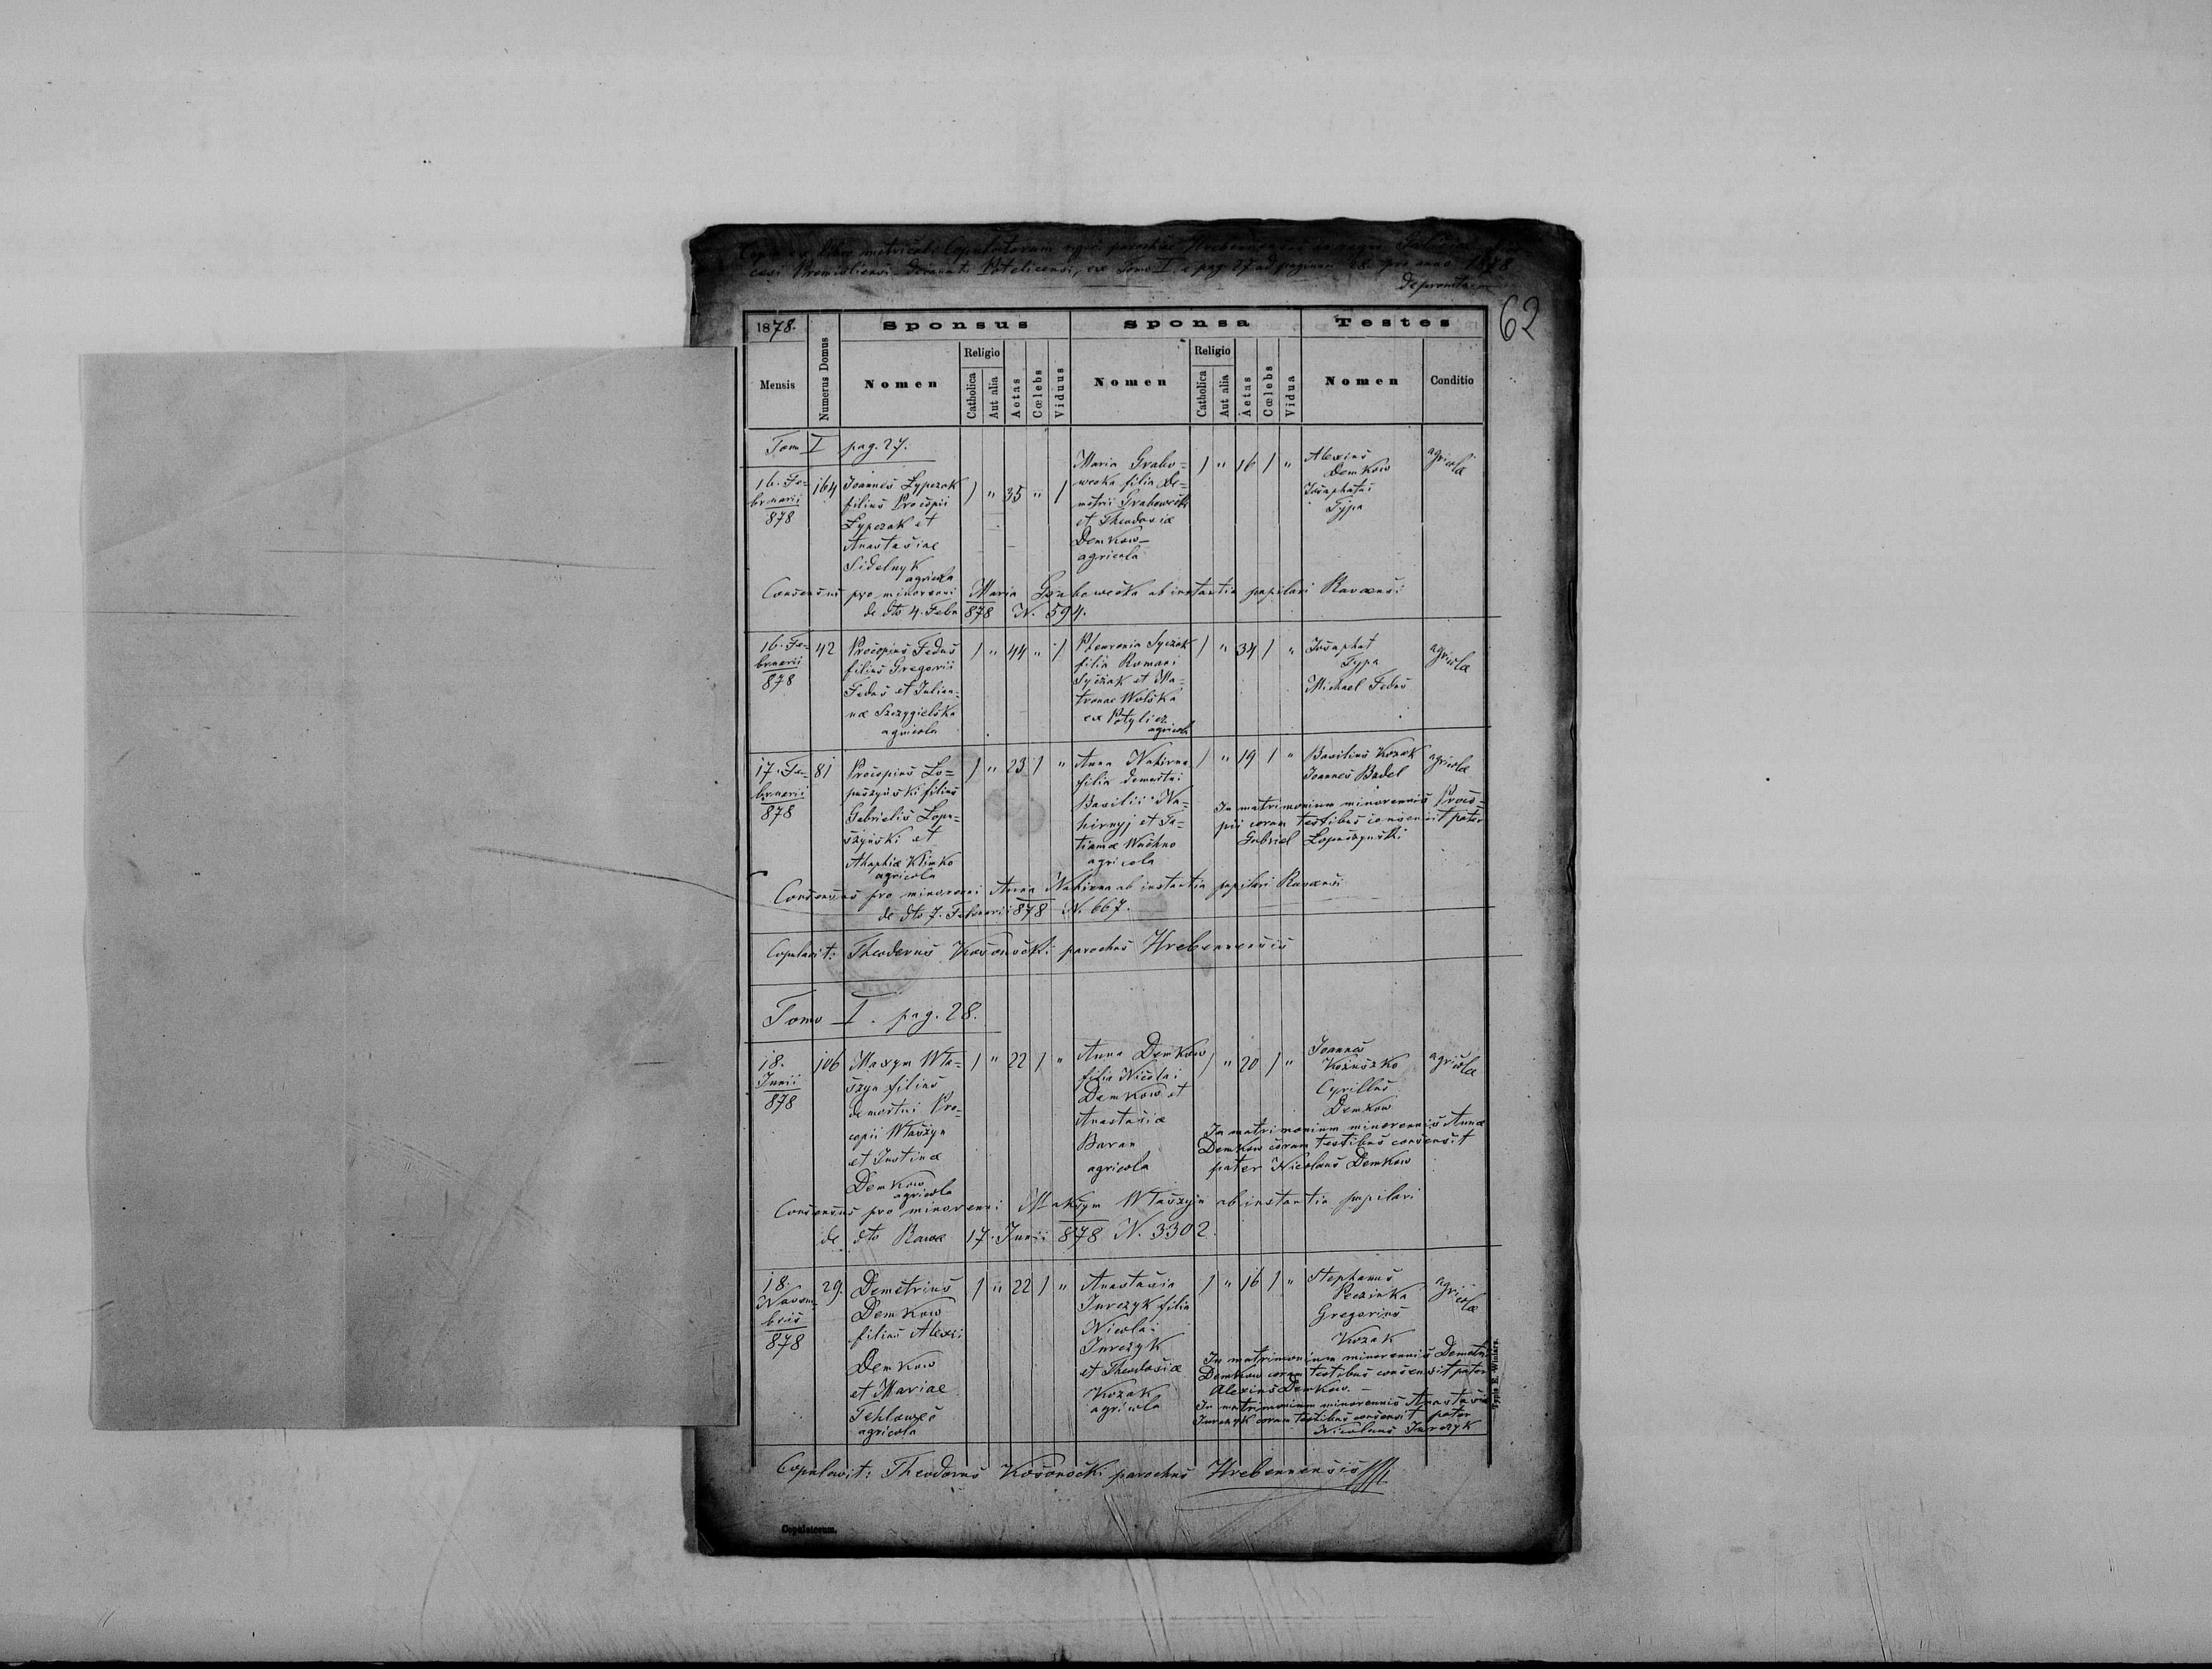 Copia ex libro metricali Copulatorum
Premisliensi, Decanatu Potelicensi, ex Tomo I. e pag. 27 ad paginam 28. pro anno 1878
depromta
62
1878. Sponsus Sponsa Testes
Mensis Numerus Domus Nomen Religio Catholica Aut alia Aetas Cœlebs Viduus Nomen Religio Catholica Aut alia Aetas Cœlebs Vidua Nomen Conditio
Tom I pag. 27.
16. Fe-
bruarii
878
164
Joannes Lypczak
filius Procopii
Lypczak et
Anastasiae
Sidelnyk
agricola
1 " 35 " 1
Maria Grabo=
wecka filia De=
metrii Grabowecki
et Theodosiæ
Demkow-
agricola
1 " 16 1 "
Alexius
Demkow
Josaphatus
Typa
agricolæ
Consensus pro minorenni Maria Grabowecka ab instantia pupilari Ravaensi
de dto 4. Febr 878 N. 594.
16. Fe-
bruarii
878
42
Procopius Fedus
filius Gregorii
Fedus et Julian-
næ Szczygielska
agricola
1 " 44 " 1
filia Romani
et Ma-
tronae Wolska
ex Potylicz
agricola
1 " 34 1 "
Josaphat
Typa
Michael Fedus
agricolæ
17. Fe-
bruarii
878
81
Procopius Lo=
puszynski filius
Gabrielis Lopu-
szynski et
Ahaphiæ Klimko
agricola
1 " 23 1 "
Anna Nahirna
filia demortui
Basilii Na-
hirnyj et Ta-
tiannæ Wachno
agricola
1 " 19 1 "
Basilius Kozak
Joannes Badel
agricolæ
In matrimonium minorennis Proco-
pii coram testibus consensit pater
Gabriel Lopuszynski
Consensus pro minorenni Anna Nahirna ab instantia pupilari Ravaensi
de dto 7. Februarii 878 N. 667.
Copulavit: Theodorus Kosonocki parochus Hrebennensis
Tomo I. pag. 28.
18.
Junii
878
106
Maxym Wla-
szyn filius
demortui Pro-
copii Wlaszyn
et Justinæ
Demkow
agricola
1 " 22 1 "
Anna Demkow
filia Nicolai
Demkow et
Anastasiæ
Baran
agricola
1 " 20 1 "
Joannes
Kozuszko
Cyrillus
Demkow
agricolæ
In matrimonium minorennis Annæ
Demkow coram testibus consensit
pater Nicolaus Demkow
Consensus pro minorenni Maksym Wlaszyn ab instantia pupilari
de dto Rawæ 17. Junii 878 N. 3302.
18.
Novem-
bris
878
29.
Demetrius
Demkow
filius Alexii
Demkow
et Mariae
agricola
1 " 22 1 "
Anastasia
Jurczyk filia
Nicolai
Jurczyk
et Theodosiæ
Kozak
agricola
1 " 16 1 "
Stephanus
Peczinka
Gregorius
Kozak
agricolæ
In matrimonium minorennis Demetrii
Demkow coram testibus consensit pater
Alexius Demkow.-
In matrimonium minorennis Anastasiæ
Jurczyk coram testibus consensit pater
Nicolaus Jurczyk
Copulavit: Theodorus Kosonocki parochus Hrebennensis
Copulatorum.
Typis E. Winiarz.